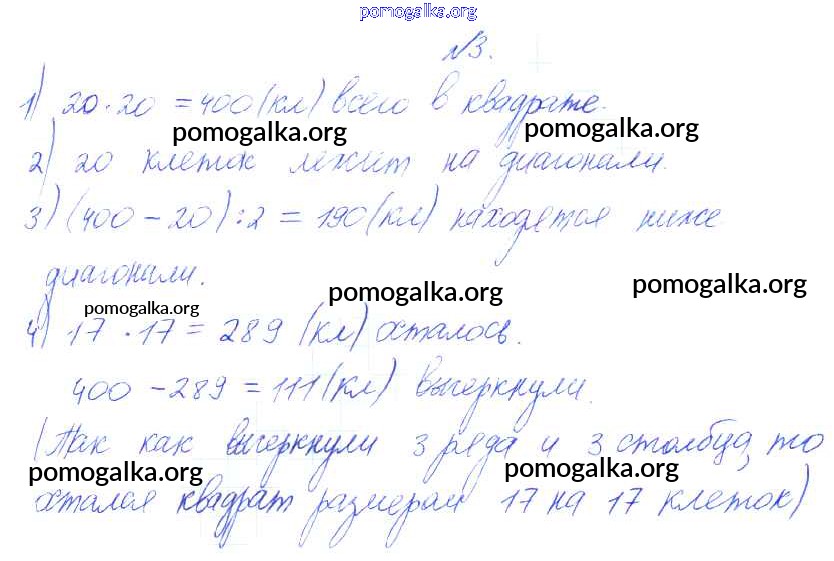 pomogalka.org
№3.
1) 20·20 = 400 (кл) всего в квадрате.
pomogalka.org pomogalka.org
2) 20 клеток лежит на диагонали.
3) (400 - 20) : 2 = 190 (кл) находятся ниже
диагонали.
pomogalka.org pomogalka.org pomogalka.org
4) 17 · 17 = 289 (кл) осталось.
400 - 289 = 111 (кл) вычеркнули.
(Так как вычеркнули 3 ряда и 3 столбца, то
pomogalka.org pomogalka.org
остался квадрат размером 17 на 17 клеток)